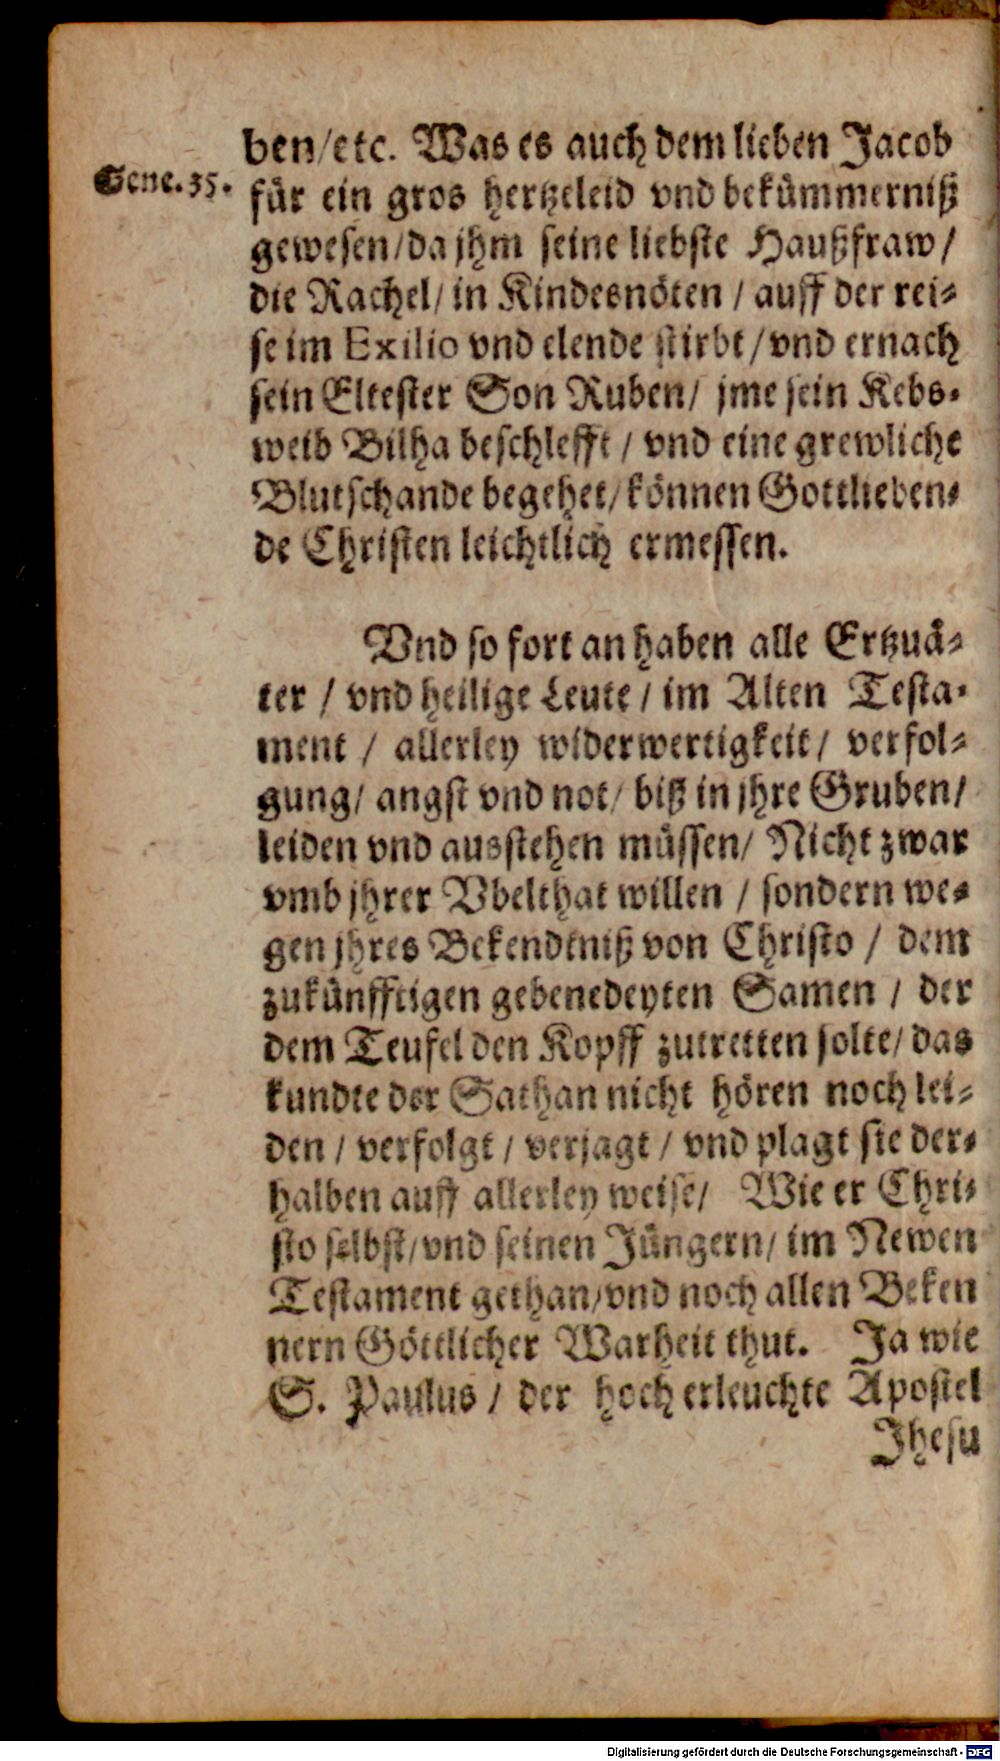 ben/etc. Was es auch dem lieben Jacob
Gene. 35.
für ein gros hertzeleid vnd bekümmerniß
gewesen/da jhm seine liebste Haußfraw/
die Rachel/ in Kindesnöten / auff der rei-
se im Exilio vnd elende stirbt/vnd ernach
sein Eltester Son Ruben/ jme sein Kebs-
weib Bilha beschlefft / vnd eine grewliche
Blutschande begehet/können Gottlieben-
de Christen leichtlich ermessen.
Vnd so fort an haben alle Ertzuä-
ter / vnd heilige Leute / im Alten Testa-
ment / allerley widerwertigkeit/ verfol-
gung/ angst vnd not/ biß in jhre Gruben/
leiden vnd ausstehen müssen/ Nicht zwar
vmb jhrer Vbelthat willen / sondern we-
gen jhres Bekendtniß von Christo / dem
zukünfftigen gebenedeyten Samen / der
dem Teufel den Kopff zutretten solte/ das
kundte der Sathan nicht hören noch lei-
den / verfolgt / verjagt / vnd plagt sie der-
halben auff allerley weise/ Wie er Chri-
sto selbst/vnd seinen Jüngern/ im Newen
Testament gethan/vnd noch allen Beken
nern Göttlicher Warheit thut. Ja wie
S. Paulus / der hoch erleuchte Apostel
Jhesu
Digitalisierung gefördert durch die Deutsche Forschungsgemeinschaft - DFG